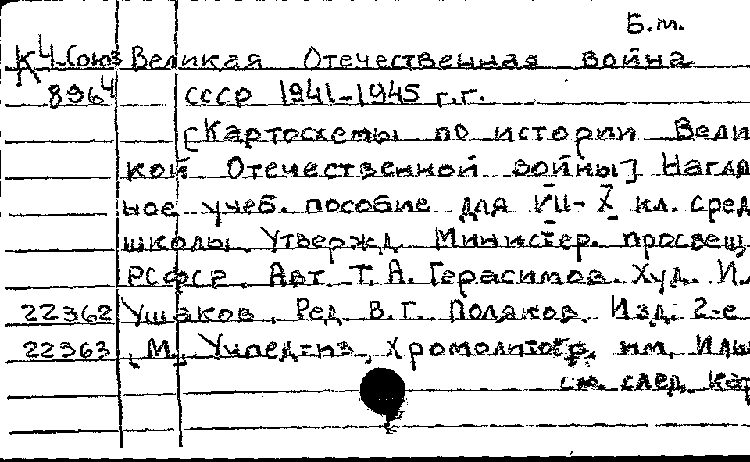 Б.м.
К4-Союз Великая Отечественная война
8964 СССР 1941-1945 г.г.
[Картосхемы по истории Вели
кой Отечественной войны] Нагляд
ное учеб. пособие для VII-X кл. сред
школы. Утвержд. Министер. просвещ
РСФСР. Авт. Т. А. Герасимова. Худ. И.
22362 Ушаков, Ред. В. Г. Поляков. Изд. 2-е
22363 М., Учпед-гиз, Хромолитогр. им. Ильи
см. след. кар